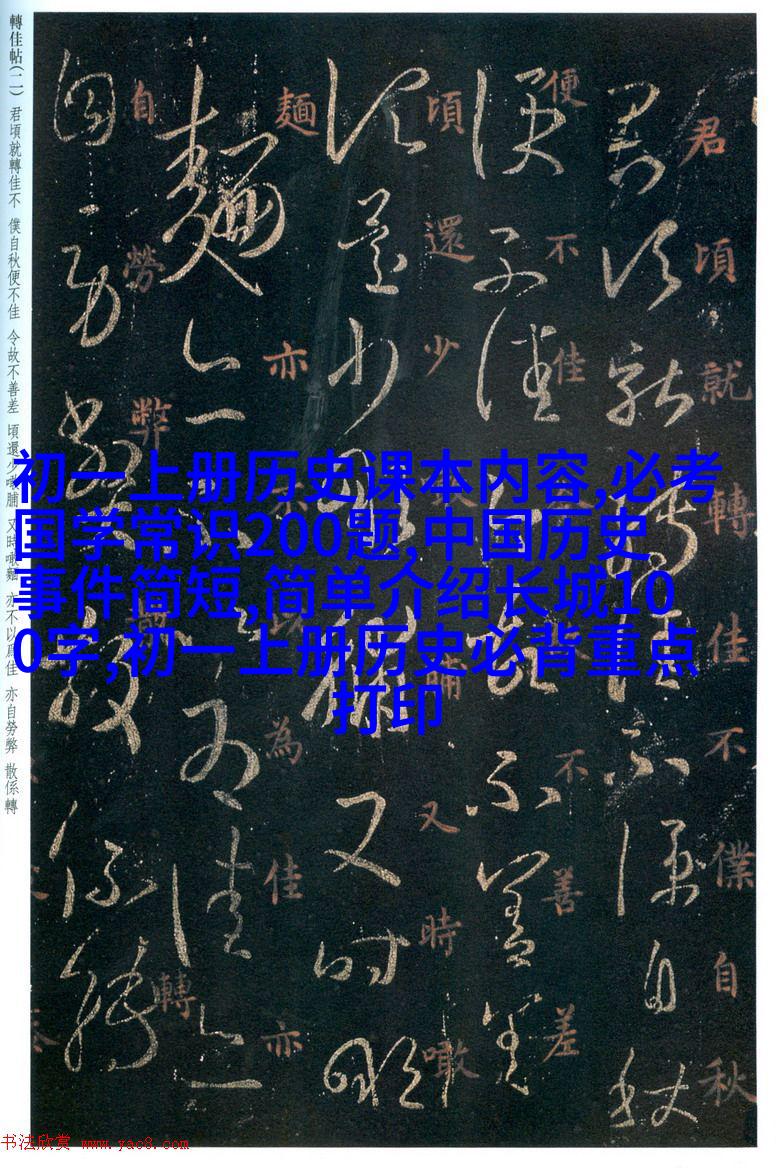 轉佳帖(二) 君頃就轉佳不 僕自秋便不佳 令故不善差 頃還少噉脯 又時噉麵 亦不以爲佳 亦自勞弊 散係轉
君頃就轉佳不僕自秋
便不佳
不善差
頃還少
脯又時噉
麵亦
以為佳亦
自勞弊
轉
初一上册历史课本内容,必考
国学常识200题,中国历史
事件简短,简单介绍长城10
0字,初一上册历史必背重点
打印
书法欣赏 www.yac8.com